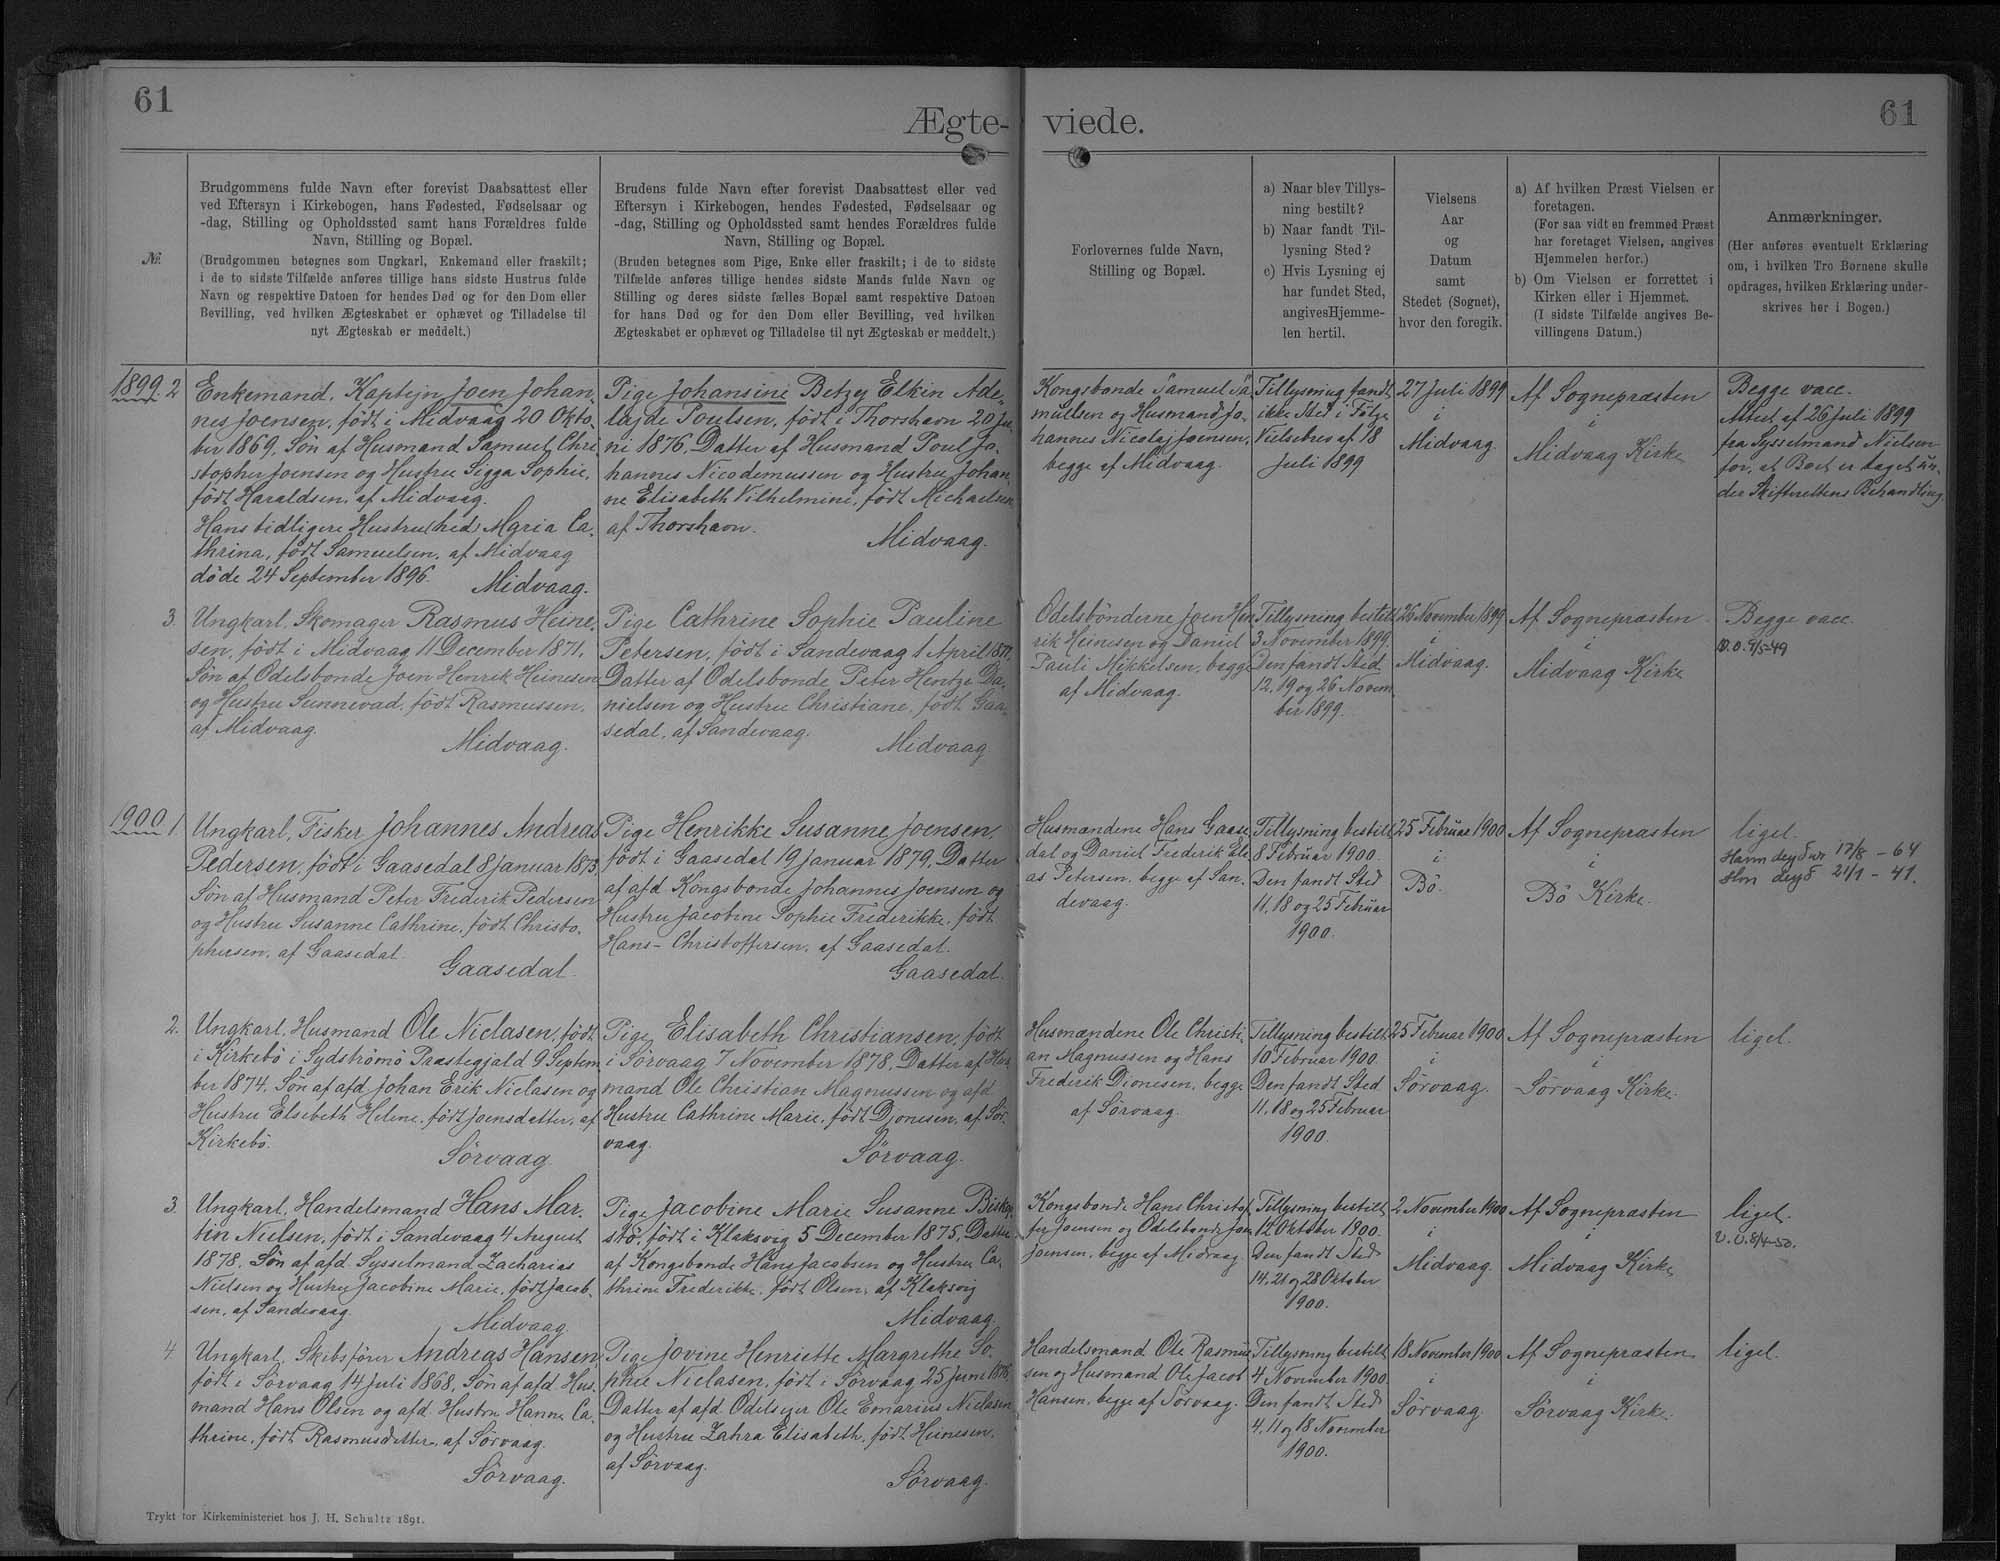 61
61
Ægte- viede.
№.
Brudgommens fulde Navn efter forevist Daabsattest eller
ved Eftersyn i Kirkebogen, hans Fødested, Fødselsaar og
-dag, Stilling og Opholdssted samt hans Forældres fulde
Navn, Stilling og Bopæl.
(Brudgommen betegnes som Ungkarl, Enkemand eller fraskilt;
i de to sidste Tilfælde anføres tillige hans sidste Hustrus fulde
Navn og respektive Datoen for hendes Død og for den Dom eller
Bevilling, ved hvilken Ægteskabet er ophævet og Tilladelse til
nyt Ægteskab er meddelt.)
Brudens fulde Navn efter forevist Daabsattest eller ved
Eftersyn i Kirkebogen, hendes Fødested, Fødselsaar og
-dag, Stilling og Opholdssted samt hendes Forældres fulde
Navn, Stilling og Bopæl.
(Bruden betegnes som Pige, Enke eller fraskilt; i de to sidste
Tilfælde anføres tillige hendes sidste Mands fulde Navn og
Stilling og deres sidste fælles Bopæl samt respektive Datoen
for hans Død og for den Dom eller Bevilling, ved hvilken
Ægteskabet er ophævet og Tilladelse til nyt Ægteskab er meddelt.)
Forlovernes fulde Navn,
Stilling og Bopæl.
a) Naar blev Tillys-
ning bestilt?
b) Naar fandt Til-
lysning Sted?
c) Hvis Lysning ej
har fundet Sted,
angives Hjemme-
len hertil.
Vielsens
Aar
og
Datum
samt
Stedet (Sognet),
hvor den foregik.
a) Af hvilken Præst Vielsen er
foretagen.
(For saa vidt en fremmed Præst
har foretaget Vielsen, angives
Hjemmelen herfor.)
b) Om Vielsen er forrettet i
Kirken eller i Hjemmet.
(I sidste Tilfælde angives Be-
villingens Datum.)
Anmærkninger.
(Her anføres eventuelt Erklæring
om, i hvilken Tro Børnene skulle
opdrages, hvilken Erklæring under-
skrives her i Bogen.)
1899. 2
Enkemand, Kaptejn Joen Johan-
nes Joensen, født i Midvaag 20 Okto-
ber 1869, Søn af Husmand Samuel Chri-
stopher Joensen og Hustru Sigga Sophie,
født Haraldsen, af Midvaag.
Hans tidligere Hustru (hed) Maria Ca-
thrina, født Samuelsen, af Midvaag
døde 24 September 1896. Midvaag.
Pige Johansine Betzy Elkin Ade-
lajde Poulsen, født i Thorshavn 20 Ju-
ni 1876, Datter af Husmand Poul Jo-
hannes Nicodemussen og Hustru Johan-
ne Elisabeth Vilhelmine, født Michaelsen
af Thorshavn.
Midvaag.
Kongsbonde Samuel Sa-
muelsen og Husmand Jo-
hannes Nicolaj Joensen,
begge af Midvaag.
Tillysning fandt
ikke Sted i Følge
Vielsebrev af 18
Juli 1899
27 Juli 1899
i
Midvaag.
Af Sognepræsten
i
Midvaag Kirke
Begge vacc.
Attest af 26 Juli 1899
fra Sysselmand Nielsen
for, at Boet er taget un-
der Skifterettens Behandling.
3.
Ungkarl, Skomager Rasmus Heine-
sen, født i Midvaag 11 December 1871,
Søn af Odelsbonde Joen Henrik Heinesen
og Hustru Sunnevad, født Rasmussen,
af Midvaag.
Midvaag.
Pige Cathrine Sophie Pauline
Petersen, født i Sandevaag 1 April
Datter af Odelsbonde Peter Hentze Da-
nielsen og Hustru Christiane, født Gaa-
sedal, af Sandevaag.
Midvaag
Odelsbønderne Joen Hen-
rik Heinesen og Daniel
Pauli Mikkelsen, begge
af Midvaag.
Tillysning bestilt
3 November 1899.
Den fandt Sted
12, 19 og 26 Novem-
ber 1899.
26 November 1899
i
Midvaag.
Af Sognepræsten
i
Midvaag Kirke
Begge vacc.
4/5-49
1900. 1.
Ungkarl, Fisker Johannes Andreas
Pedersen, født i Gaasedal 8 Januar 1873,
Søn af Husmand Peter Frederik Pedersen
og Hustru Susanne Cathrine, født Christo-
phersen, af Gaasedal.
Gaasedal.
Pige Henrikke Susanne Joensen,
født i Gaasedal 19 Januar 1879, Datter
af afd. Kongsbonde Johannes Joensen og
Hustru Jacobine Sophie Frederikke, født
Hans-Christoffersen, af Gaasedal.
Gaasedal.
Husmændene Hans Gaase-
dal og Daniel Frederik Eli-
as Petersen, begge af San-
devaag.
Tillysning bestilt
8 Februar 1900.
Den fandt Sted
11, 18 og 25 Februar
1900.
25 Februar 1900
i
Bö.
Af Sognepræsten
i
Bö Kirke.
ligel.
Hann deyður 17/8 - 64
Hon deyð 21/1 - 41.
2.
Ungkarl, Husmand Ole Niclasen, født
i Kirkebö i Sydströmö Præstegjæld 9 Septem-
ber 1874, Søn af afd. Johan Erik Niclasen og
Hustru Elsebeth Helene, født Joensdatter, af
Kirkebö.
Sörvaag
Pige Elisabeth Christiansen, født
i Sörvaag 7 November 1878, Datter af Hus-
mand Ole Christian Magnussen og afd.
Hustru Cathrine Marie, født Djonesen, af Sör-
vaag.
Sörvaag.
Husmændene Ole Christi-
an Magnussen og Hans
Frederik Dionesen, begge
af Sörvaag.
Tillysning bestilt
10 Februar 1900.
Den fandt Sted
11, 18 og 25 Februar
1900.
25 Februar 1900
i
Sörvaag.
Af Sognepræsten
i
Sörvaag Kirke.
ligel.
3.
Ungkarl, Handelsmand Hans Mar-
tin Nielsen, født i Sandevaag 4 August
1878, Søn af afd. Sysselmand Zacharias
Nielsen og Hustru Jacobine Marie, født Jacob-
sen, af Sandevaag.
Midvaag
Pige Jacobine Marie Susanne Bisko-
stö, født i Klaksvig 5 December 1875, Datter
af Kongsbonde Hans Jacobsen og Hustru Ca-
thrine Frederikke, født Olsen, af Klaksvig
Midvaag
Kongsbonde Hans Christof-
fer Joensen og Odelsbonde Joen
Joensen, begge af Midvaag.
Tillysning bestilt
12 Oktober 1900.
Den fandt Sted
14, 21 og 28 Oktober
1900.
2 November 1900
i
Midvaag.
Af Sognepræsten
i
Midvaag Kirke
ligel.
4
Ungkarl, Skibsfører Andreas Hansen,
født i Sörvaag 14 Juli 1868, Søn af afd. Hus-
mand Hans Olsen og afd. Hustru Hanne Ca-
thrine, født Rasmusdatter, af Sörvaag.
Sörvaag.
Pige Jovine Henriette Margrethe So-
phie Niclasen, født i Sörvaag 25 Juni
Datter af afd. Odelsejer Ole Emarius Niclasen
og Hustru Zahra Elisabeth, født Heinesen,
af Sörvaag.
Sörvaag.
Handelsmand Ole Rasmus-
sen og Husmand Ole Jacob
Hansen, begge af Sörvaag.
Tillysning bestilt
4 November 1900.
Den fandt Sted
4, 11 og 18 November
1900.
18 November 1900
i
Sörvaag
Af Sognepræsten
i
Sörvaag Kirke.
ligel.
Trykt for Kirkeministeriet hos J. H. Schultz 1891.